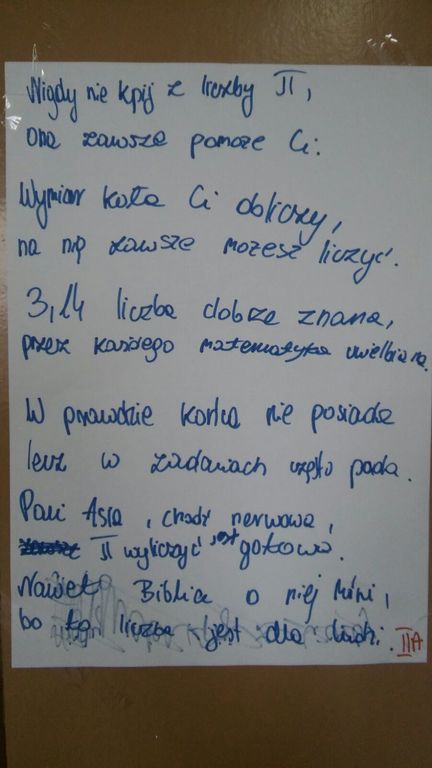 Nigdy nie kpij z liczby π,
ona zawsze pomoże Ci.
Wymiar koła Ci obliczy,
na nią zawsze możesz liczyć.
3,14 liczba dobrze znana,
przez każdego matematyka uwielbiana.
W prawdzie końca nie posiada
lecz w zadaniach często pada.
Pani Asia, choć nerwowa,
π wyliczyć jest gotowa.
Nawet Biblia o niej mówi,
bo ta liczba jest dla ludzi.
IIA